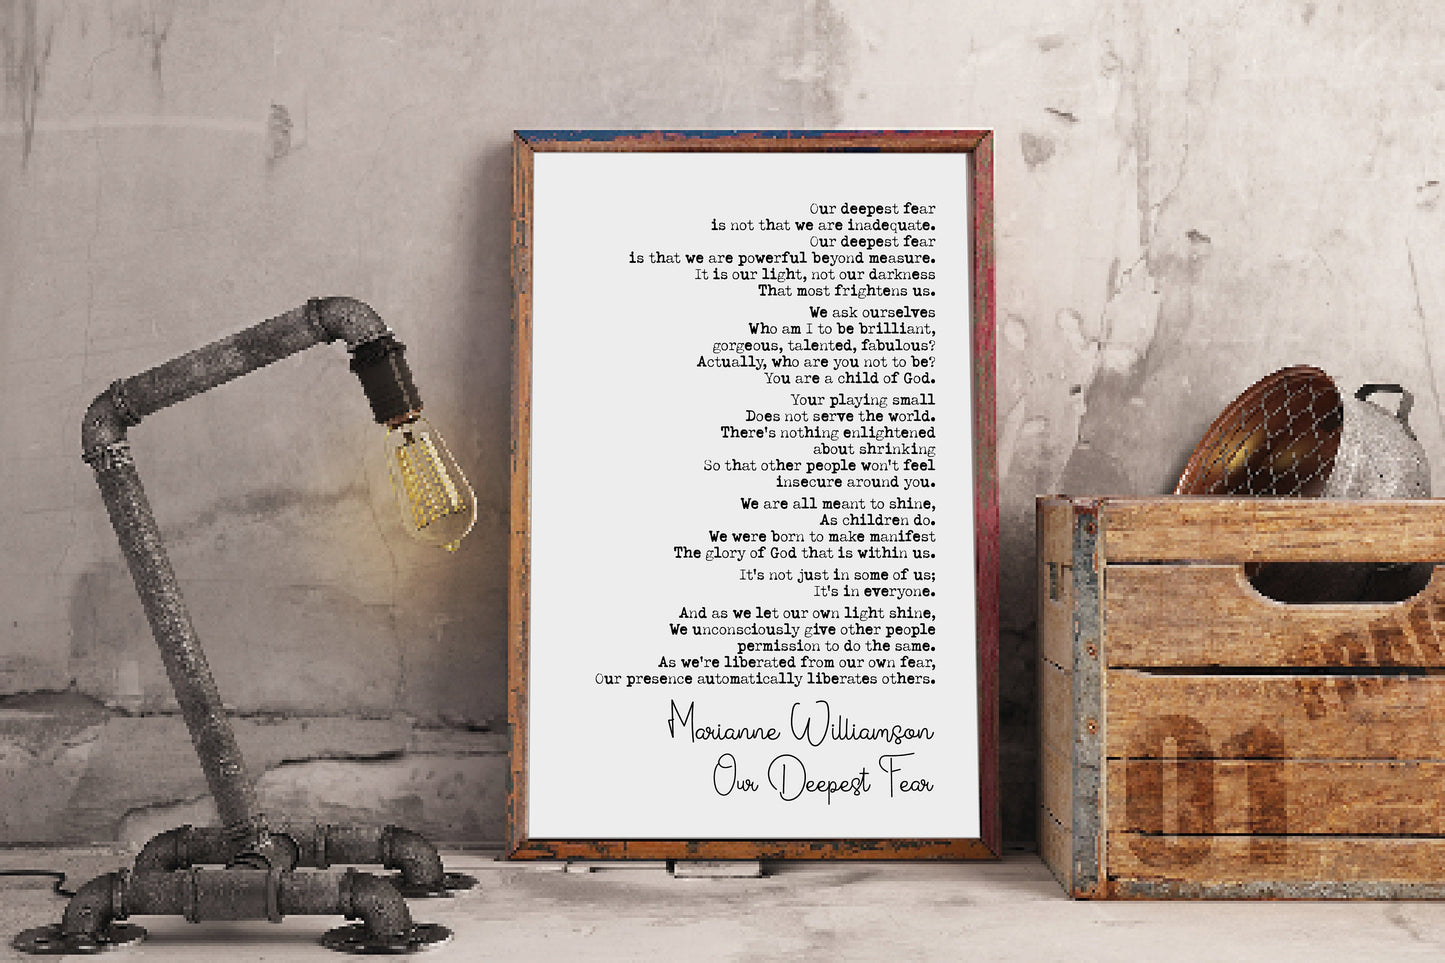 Our deepest fear
is not that we are inadequate.
Our deepest fear
is that we are powerful beyond measure.
It is our light, not our darkness
That most frightens us.
We ask ourselves
Who am I to be brilliant,
gorgeous, talented, fabulous?
Actually, who are you not to be?
You are a child of God.
Your playing small
Does not serve the world.
There's nothing enlightened
about shrinking
So that other people won't feel
insecure around you.
We are all meant to shine,
As children do.
We were born to make manifest
The glory of God that is within us.
It's not just in some of us;
It's in everyone.
And as we let our own light shine,
We unconsciously give other people
permission to do the same.
As we're liberated from our own fear,
Our presence automatically liberates others.
Marianne Williamson
Our Deepest Fear
01